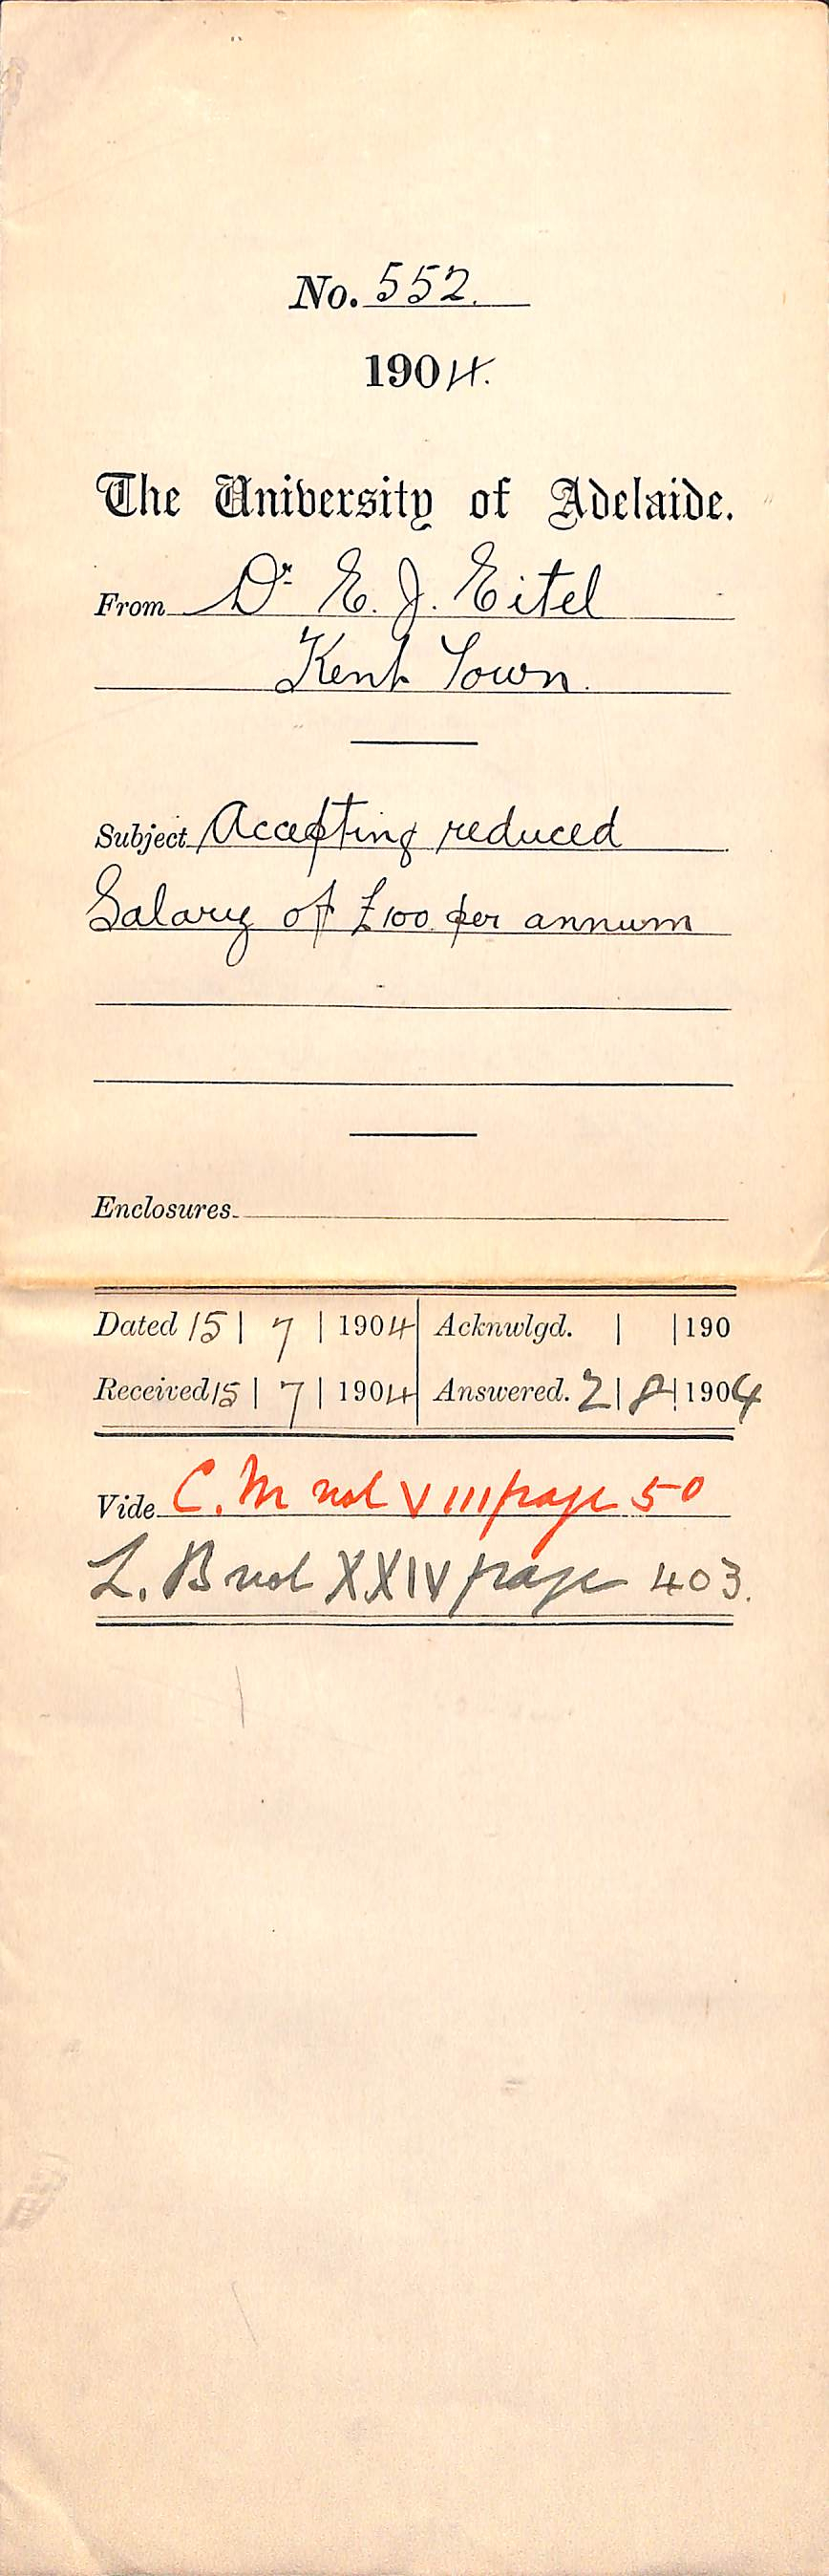 No. 552.
1904.
The University of Adelaide.
From Dr. E. J. Eitel
Kent Town.
Subject Accepting reduced
Salary of £100 per annum
Enclosures.
Dated 15 | 7 | 1904 Acknwlgd. | | 190
Received 15 | 7 | 1904 Answered. 2 | 8 | 1904
Vide C. M vol VIII page 50
L. B vol XXIV page 403.